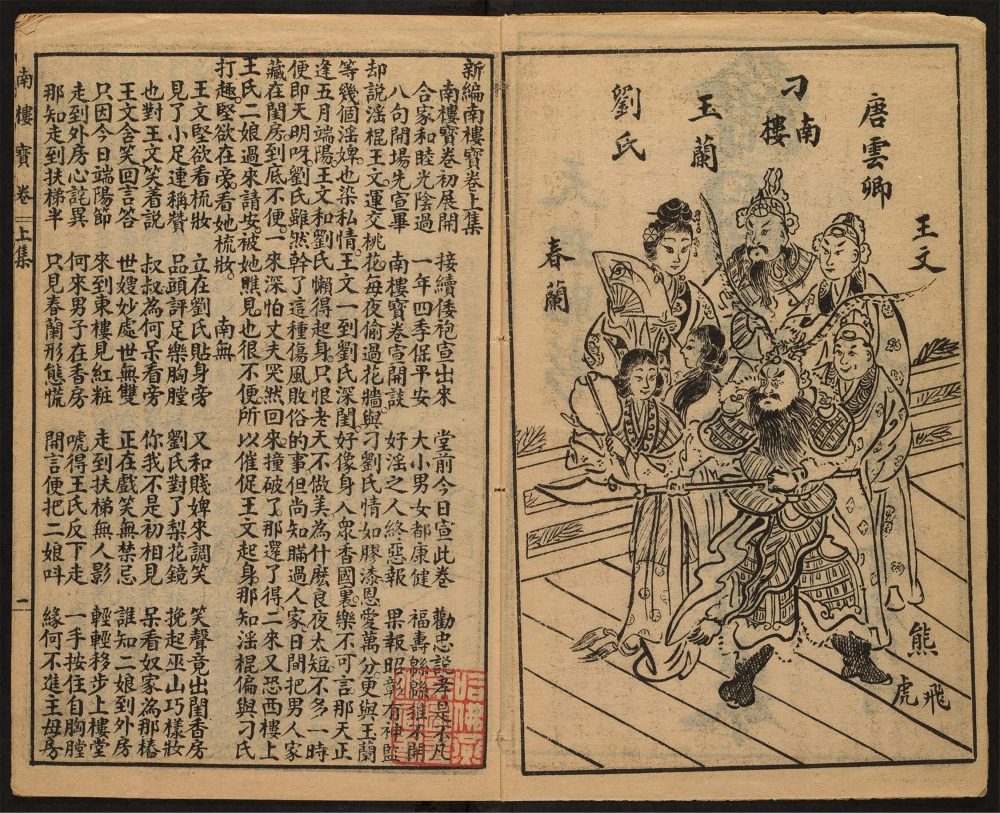 唐雲卿
王文
刁南樓
玉蘭
劉氏
春蘭
熊飛虎
新編南樓寶卷上集
南樓寶卷初展開 接續倭袍宣出來 堂前今日宣此卷 勸忠說孝是不凡
合家和睦光陰過 一年四季保平安 大小男女都康健 福壽綿綿 不開
八句開場先宣畢 南樓寶卷宣開談 好淫之人終惡報 果報昭彰有神監
却說淫棍王文運交桃花每夜偷過花牆與刁劉氏情如膠漆恩愛萬分更與玉蘭
等幾個淫婢也染私情王文一到劉氏深閨好像身入眾香國裏樂不可言那天正
逢五月端陽王文和劉氏懶得起身只恨老天不做美為什麽良夜太短不多一時
便即天明呀劉氏雖然幹了這種傷風敗俗的事但尚知瞞過人家日間把男人家
藏在閨房到底不便一來深怕丈夫突然回來撞破了那還了得二來又恐西樓上
王氏二娘過來請安被她瞧見也很不便所以催促王文起身那知淫棍偏與刁氏
打趣堅欲在旁看她梳妝 南無
王文堅欲看梳妝 立在劉氏貼身旁 又和賤婢來調笑 笑聲竟出閨香房
見了小足連稱贊 品頭評足樂胸膛 劉氏對了梨花鏡 挽起巫山巧樣妝
也對王文笑着說 叔叔為何呆看旁 你我不是初相見 呆看奴家為那樁
王文含笑回言答 世嫂妙處世無雙 正在戲笑無禁忌 誰知二娘到外房
只因今日端陽節 來到東樓見紅粧 走到扶梯無人影 輕輕移步上樓堂
走到外房心詫異 何來男子在香房 唬得王氏反下走 一手按住自胸膛
那知走到扶梯半 只見春蘭形態慌 開言便把二娘叫 緣何不進王母房
南樓寶卷 上集 一